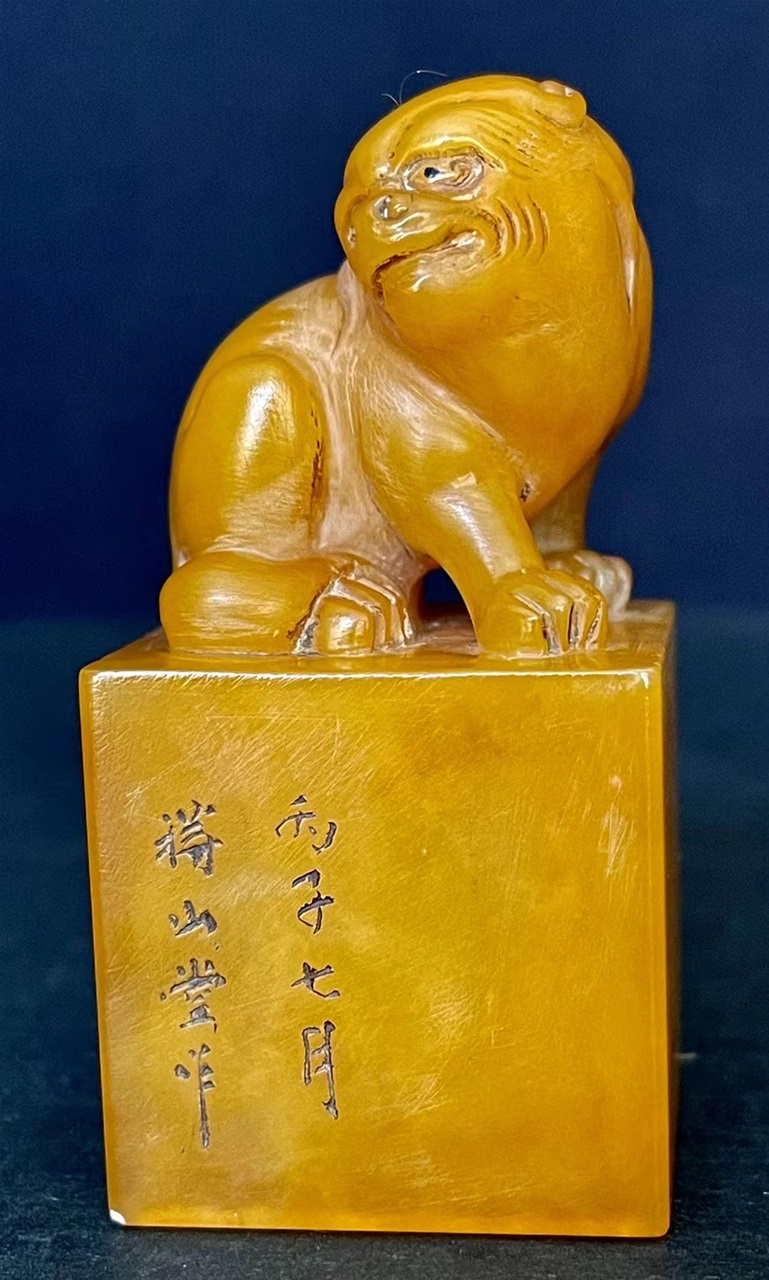 丙子七月
蔣山堂作